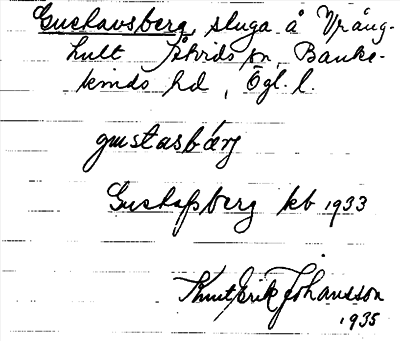 Gustavsberg, stuga å Vräng-
hult Åtvids sn, Banke-
kinds hd, Ögl. l.
gustasbärj
Gustafsberg kb 1933
Knut Erik Johansson
1935